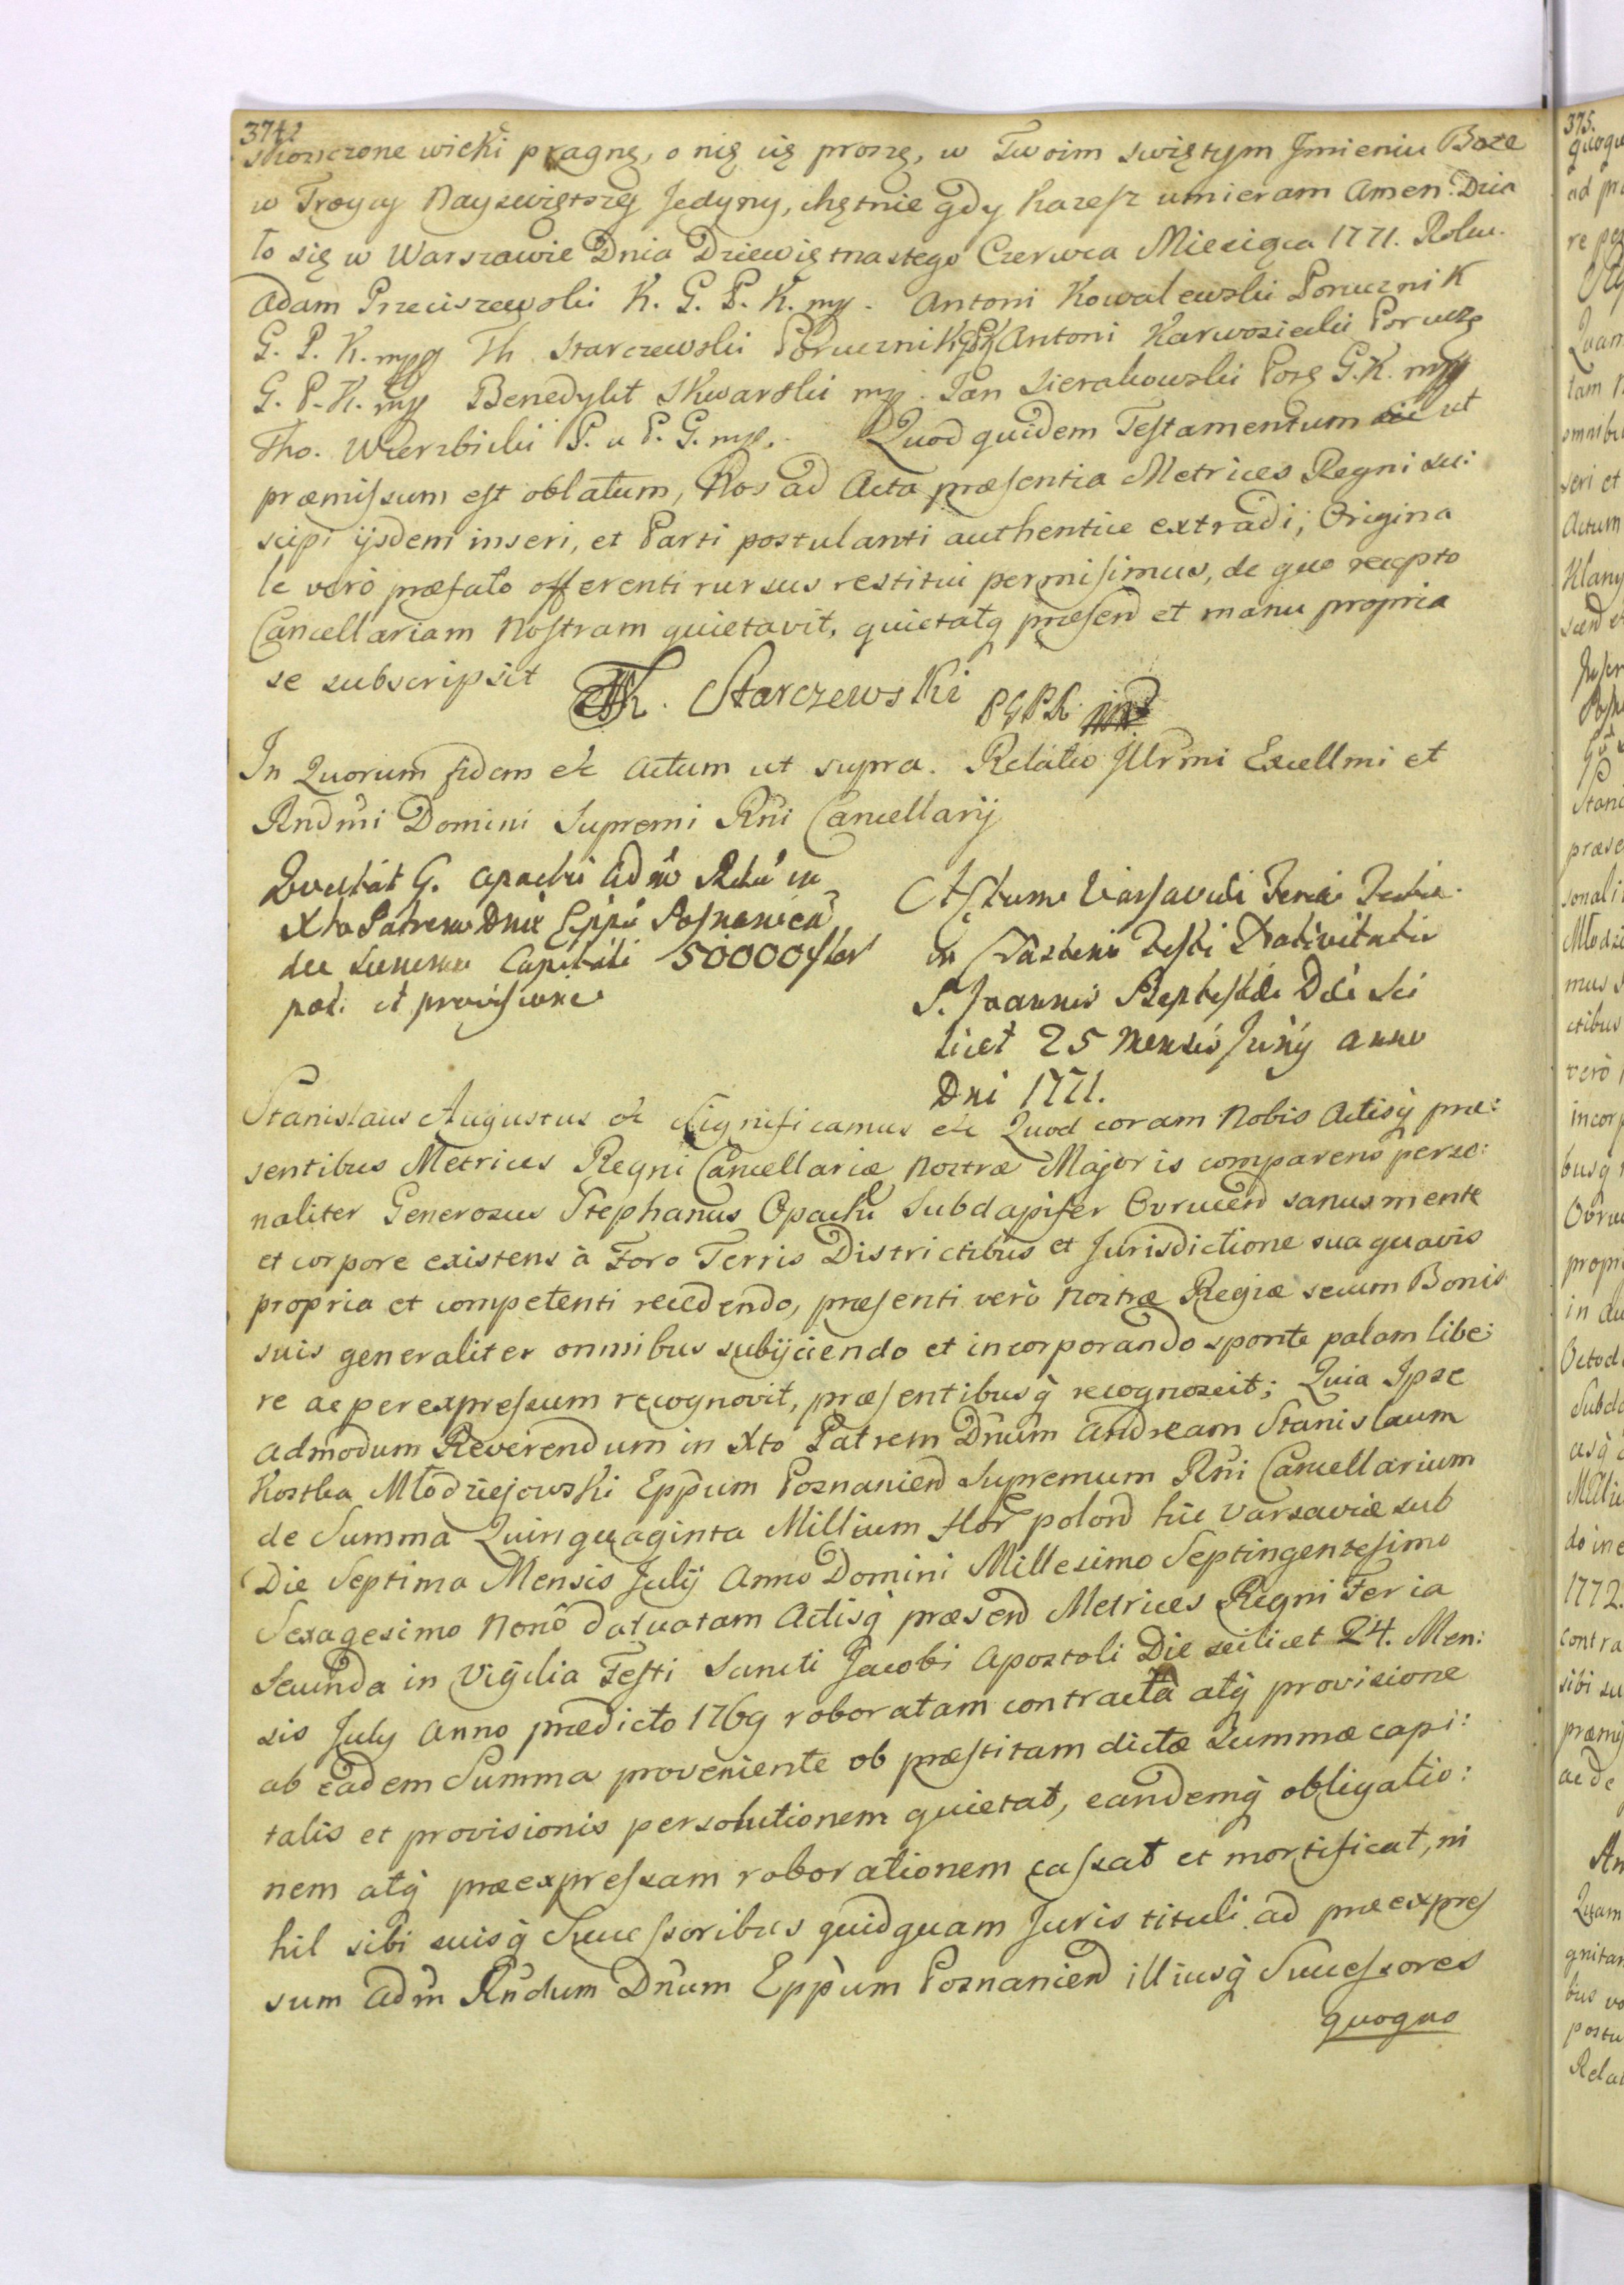 374
skończone wieki pragnę, o nię się proszę, w Twoim swiętym Jmieniu Boze
w Troycy Nayswiętszey Jedyny, chętnie gdy kazesz umieram Amen. Dzia
ło się w Warszawie Dnia Dziewiętnastego Czerwca Miesiąca 1771. Roku.
Adam Przeciszewski K. G. P. K. mp. Antoni Kowalewski Porucznik
G. P. K. mpp Th. Starczewski Porucznik GPK Antoni Karwosiecki Porucz
G. P. K. mp Benedykt Skwarski mp. Jan Sierakowski Porę G. K. mpp
Tho. Wierzbicki P. u P. G. mp. Quod quidem Testamentum ut
præmissum est oblatum, Nos ad Acta præsentia Metrices Regni su:
scipi ijsdem inseri, et Parti postulanti authentice extradi, Origina
le verò præfato offerenti rursus restitui permisimus, de quo recepto
Cancellariam Nostram quietavit, quietatq præsen et manu propria
se subscripsit Th. Starczewski PGPK mp
In Quorum fidem etc Actum ut supra. Relatio Illrmi Excellmi et
Rndmi Domini Supremi Rni Cancellarij
Quietat G. Opacki Adm Rdu in
Xto Patrem Dnu Eppu Posnanien
de Summa Capitali 50000 flor
pol. et provisione
Actum Varsaviæ Feria Tertia
in Crastino Festi Nativitatis
S. Joannis Baptistæ Die sci
licet 25 Mensis Junij anno
Dni 1771.
Stanislaus Augustus etc Significamus etc Quod coram Nobis Actisq præ:
sentibus Metrices Regni Cancellariæ Nostræ Majoris comparens perso:
naliter Generosus Stephanus Opacki Subdapifer Ovrucen sanus mente
et corpore existens à Foro Terris Districtibus et Jurisdictione sua quavis
propria et competenti recedendo, præsenti verò Nostræ Regiæ secum Bonis
suis generaliter omnibus subijciendo et incorporando sponte palam libe:
re ac per expressum recognovit, præsentibusq recognoscit; Quia Ipse
admodum Reverendum in Xto Patrem Dnum Andream Stanislaum
Kostka Młodziejowski Eppum Posnanien Supremum Rni Cancellarium
de Summa Quinquaginta Millium flor polon hic Varsaviæ sub
Die Septima Mensis Julij Anno Domini Millesimo Septingentesimo
Sexagesimo Nono datuatam Actisq præsen Metrices Regni Feria
Secunda in Vigilia Festi Sancti Jacobi Apostoli Die scilicet 24. Men:
sis July Anno prædicto 1769 roboratam contracta atq provisione
ab eadem Summa proveniente ob præstitam dictæ Summæ capi:
talis et provisionis persolutionem quietat, eandemq obligatio:
nem atq præexpressam roborationem cassat et mortificat, ni
hil sibi suisq Successoribus quidquam Juris tituli ad præexpres
sum adm Rndum Dnum Eppum Posnanien illiusq Successores
quoquo
375.